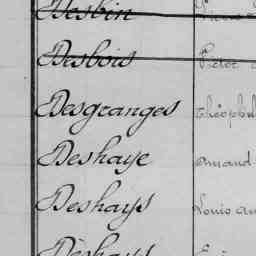 Desbin
Desbois Victor
Desgranges Théophil
Deshaye Amand
Deshays Louis Am
Deshays